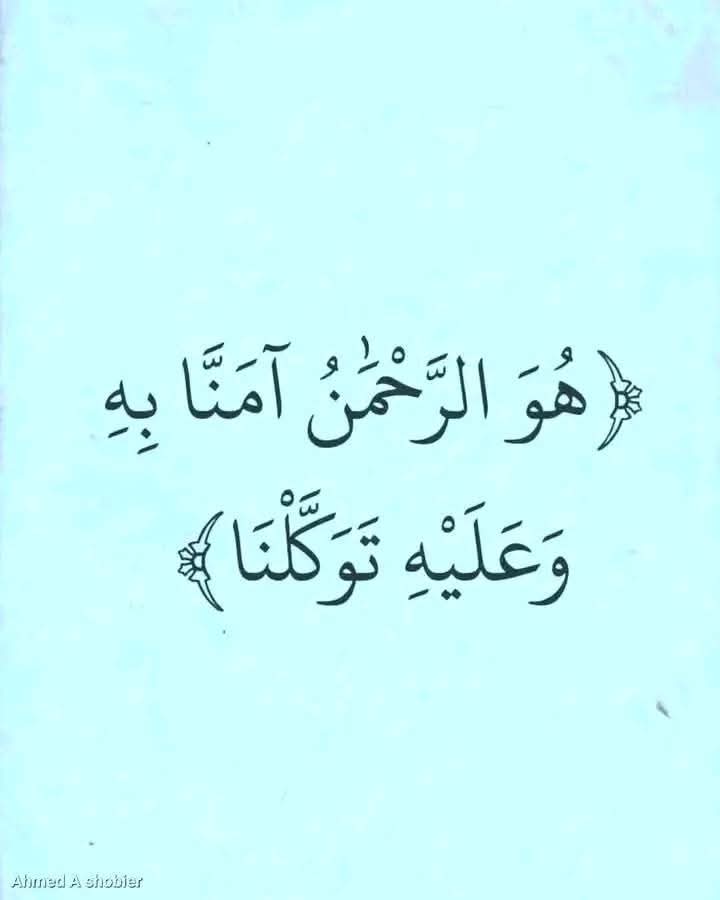 ﴿هُوَ الرَّحْمَٰنُ آمَنَّا بِهِ
وَعَلَيْهِ تَوَكَّلْنَا﴾
Ahmed A shobier